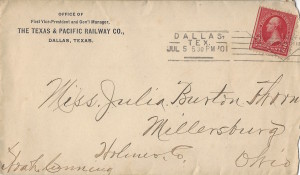 OFFICE OF
First Vice-President and Gen'l Manager,
THE TEXAS & PACIFIC RAILWAY CO.,
DALLAS, TEXAS.
DALLAS,
TEX.
JUL 5 6 30 PM '01
Miss. Julia Burton Thorn
Millersburg
Holmes Co.
Ohio